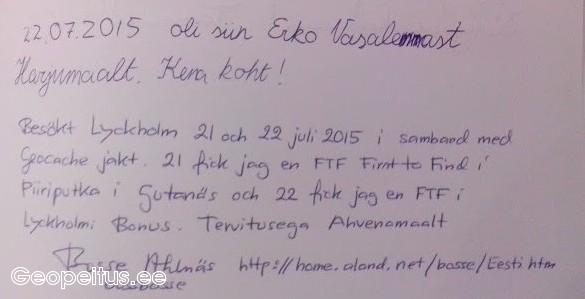 22.07.2015 oli siin Erko Vasalemmast
Harjumaalt. Kena koht!
Besökt Lyckholm 21 och 22 juli 2015 i samband med
Geocache jakt. 21 fick jag en FTF First to Find i
Piiriputka i Sutanäs och 22 fick jag en FTF i
Lyckholmi Bonus. Tervitusega Ahvenamaalt
Basse Ahlnäs http://home.aland.net/basse/Eesti.htm
Geopeitus.ee